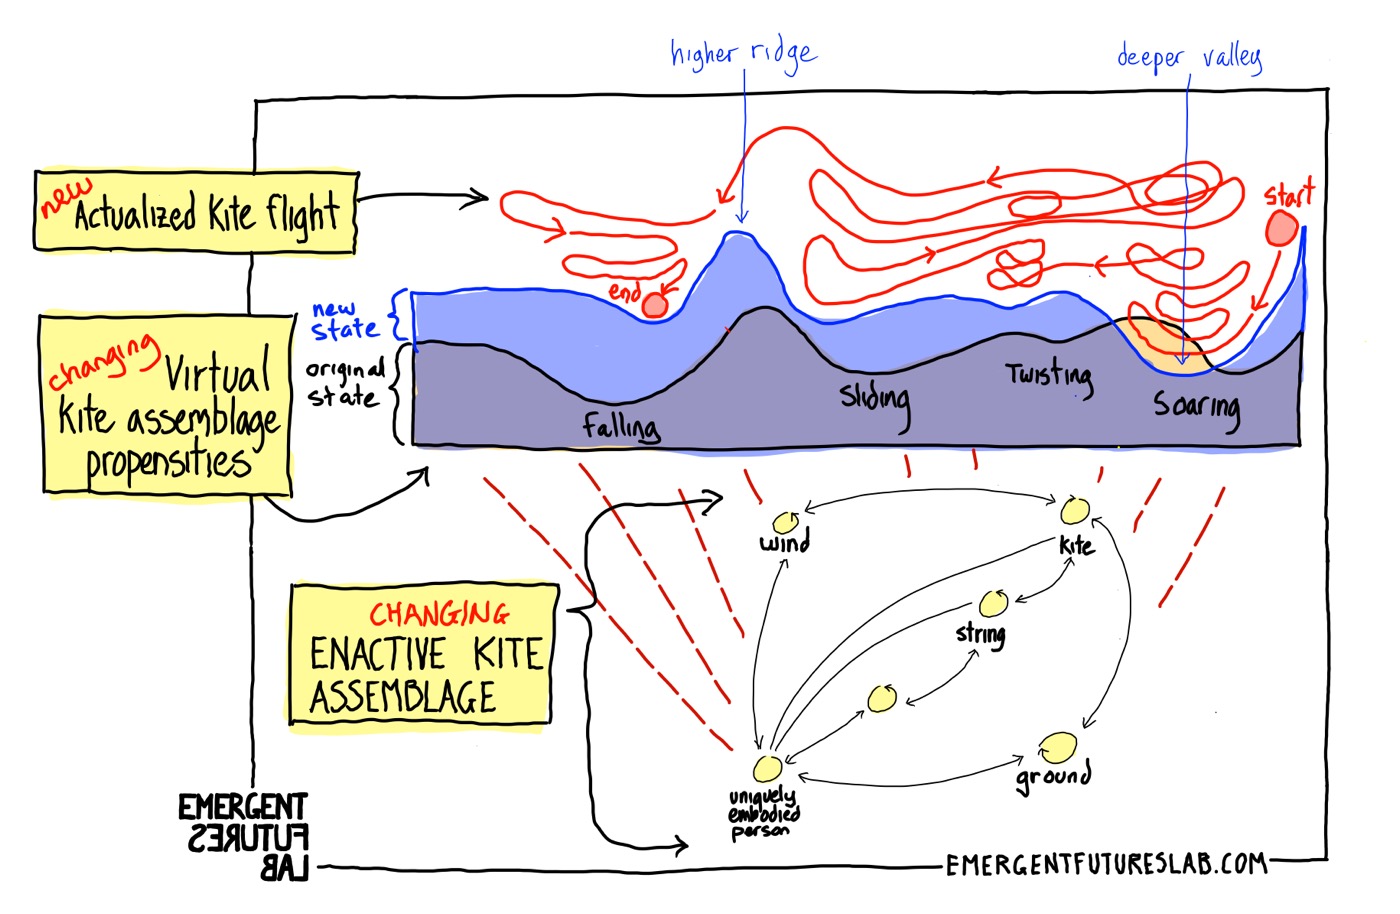 higher ridge
deeper valley
new
Actualized Kite flight
start
end
new
state
original
state
changing
Virtual
Kite assemblage
propensities
falling
Sliding
Twisting
Soaring
wind
kite
string
CHANGING
ENACTIVE KITE
ASSEMBLAGE
ground
uniquely
embodied
person
EMERGENT
FUTURES
LAB
EMERGENTFUTURESLAB.COM